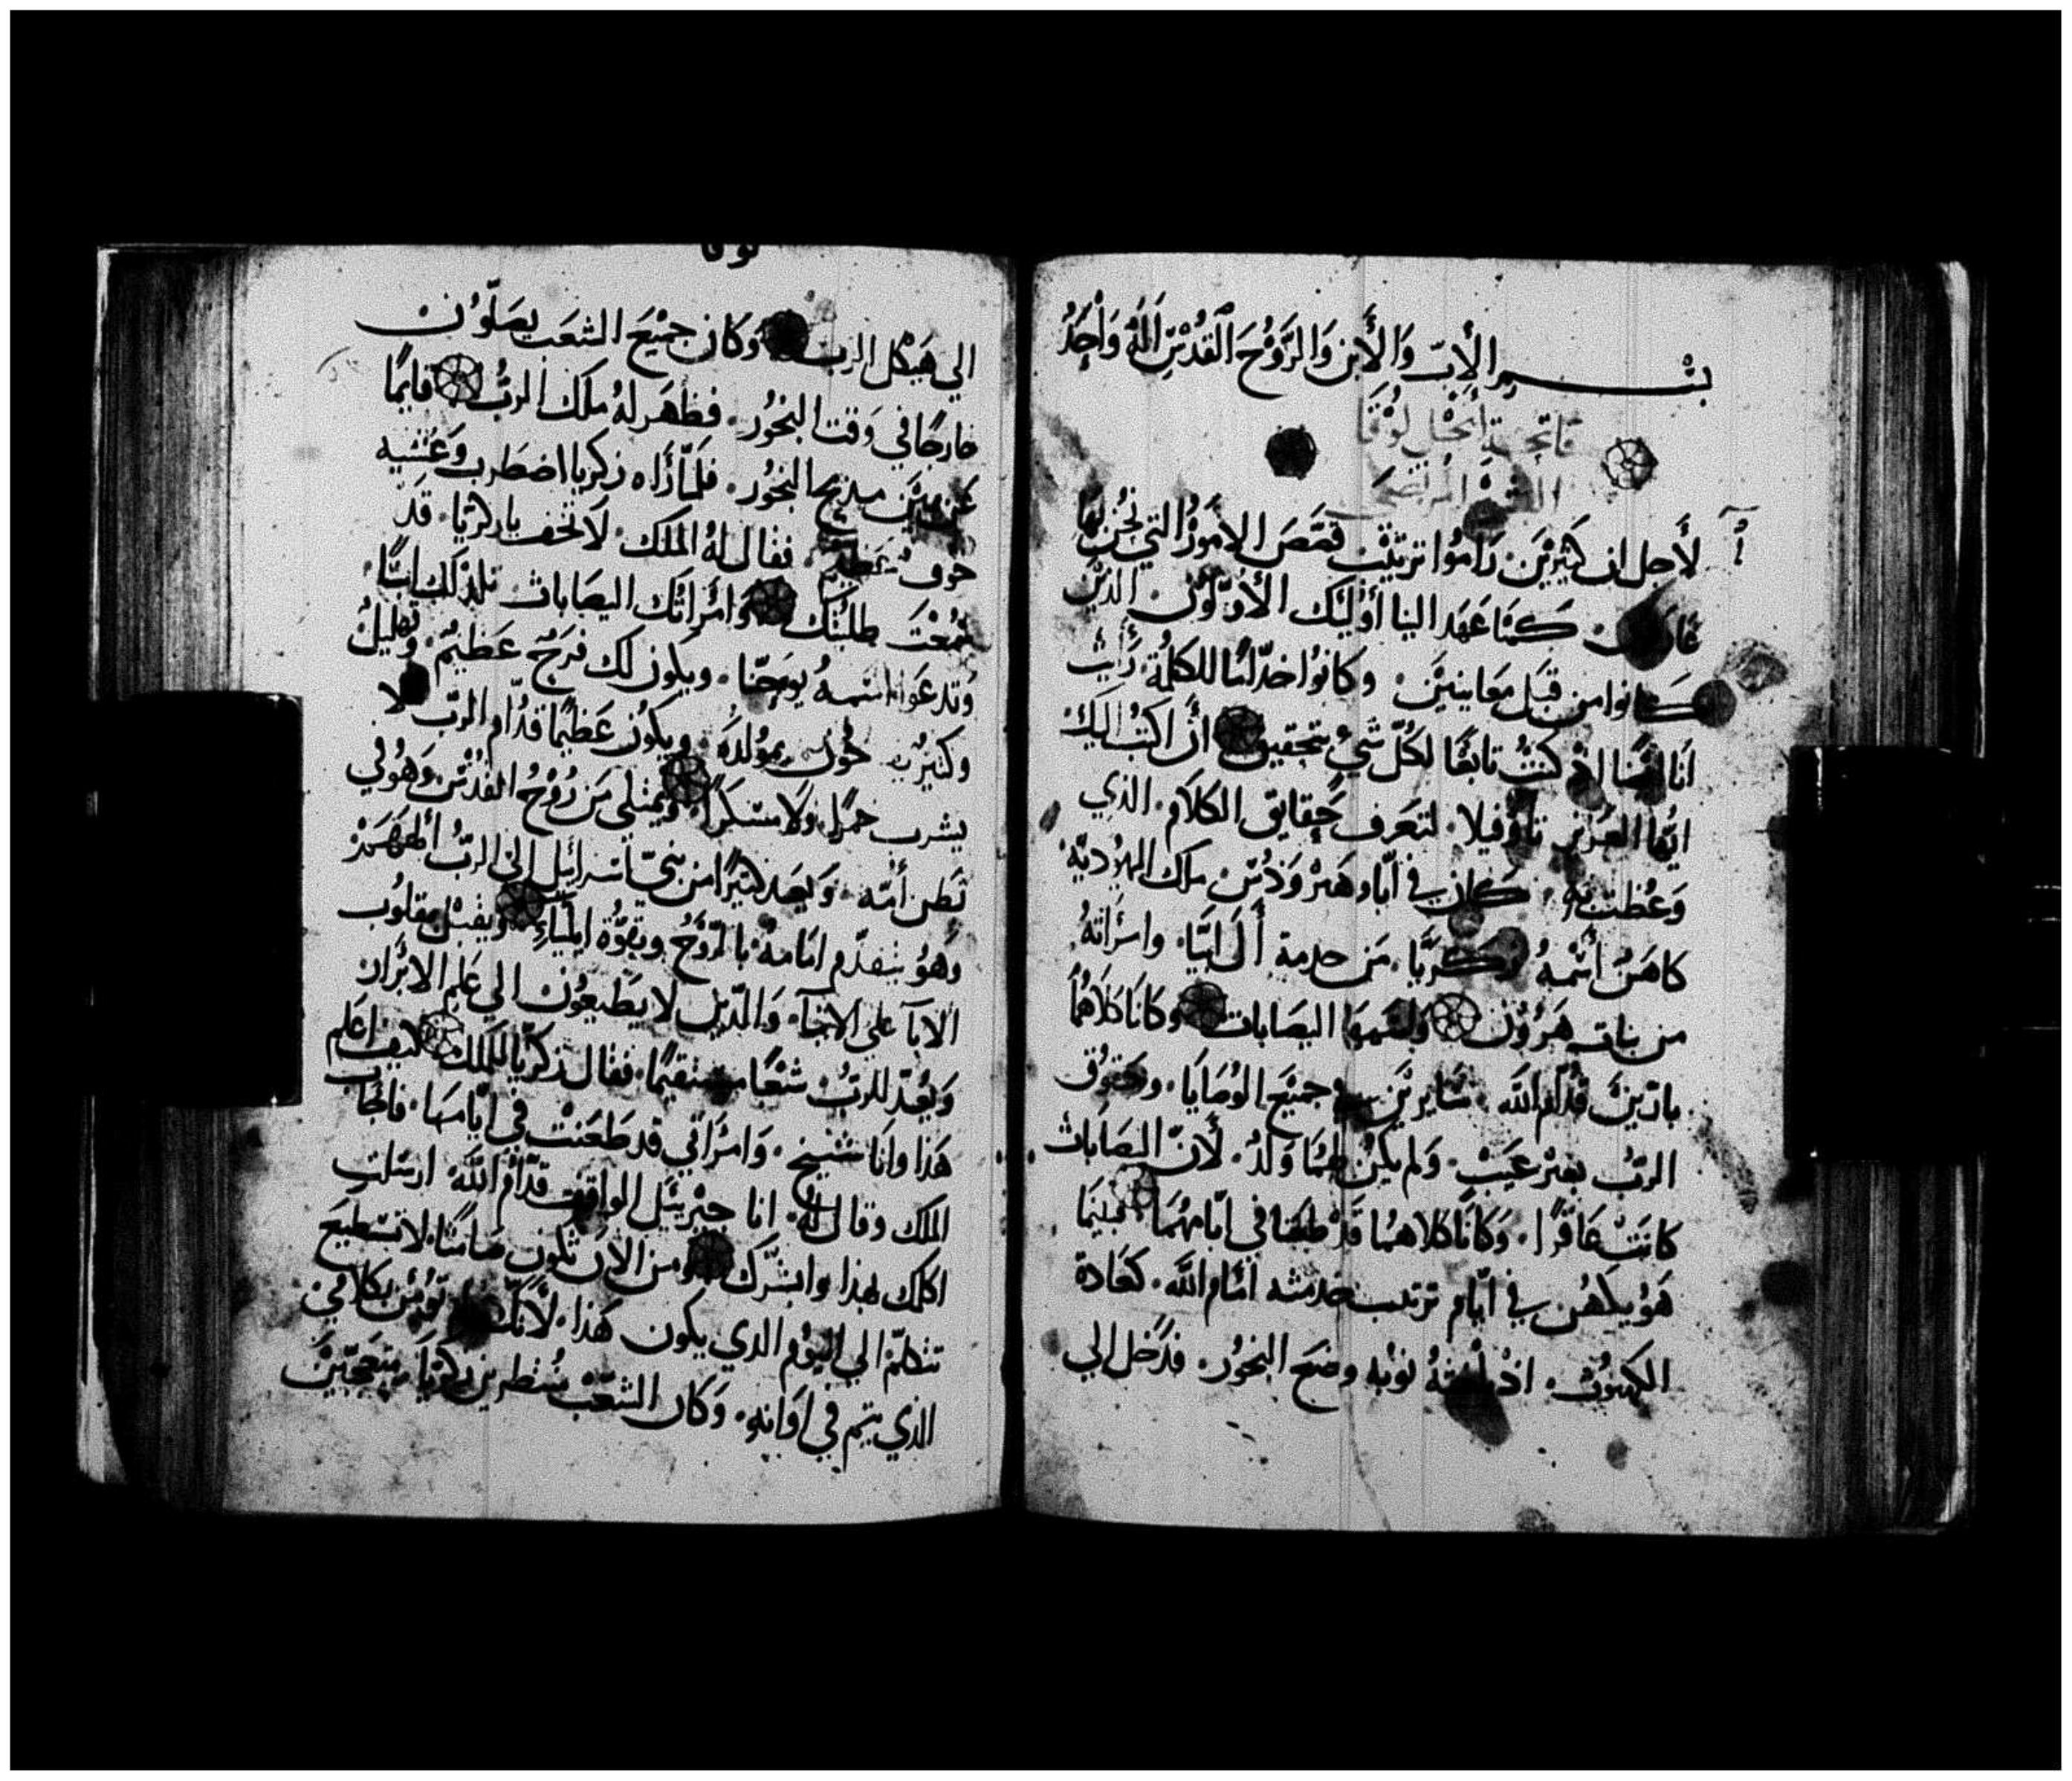 بسم الأب والأبن والروح القدس اله واحد
فاتحة انجيل لوقا
لأجل ان كثيرين راموا ترتيب قصص الامور التي نحن بها
كما عهد الينا أوليك الأولون الذين
كانوا من قبل معاينين وكانوا خداما للكلمة رأيت
انا ايضا اذ كنت تابعا لكل شي بتحقيق أن اكتب اليك
ايها العزيز تاوفيلا لتعرف حقايق الكلام الذي
وعظت به كان في ايام هيرودس ملك اليهودية
كاهن أسمه زكريا من خدمة أل ابيا وامرأته
من بنات هرون واسمها اليصابات وكانا كلاهما
بارين قدام الله سايرين في جميع الوصايا وحقوق
الرب بغير عيب ولم يكن لهما ولد لأن اليصابات
كانت عاقرا وكانا كلاهما قد طعنا في ايامهما فبينما
هو يكهن في ايام ترتيب خدمته امام الله كعادة
الكهنوت اذ نوبه وضع البخور فدخل الي
لوقا
الي هيكل الرب وكان جميع الشعب يصلون
خارجا في وقت البخور فظهر له ملك الرب قايما
عن يمين مذبح البخور فلما رأاه زكريا اضطرب وغشيه
خوف عظيم فقال له الملك لا تخف يا زكريا قد
سمعت طلبتك وامرأتك اليصابات تلد لك ابنا
وتدعوا اسمه يوحنا ويكون لك فرح عظيم وتهليل
وكثيرون بمولده ويكون عظيما قدام الرب لا
يشرب خمرا ولا مسكرا ويمتلى من روح القدس وهو في
بطن أمه ويعيد كثيرا من بني أسرائيل الى الرب ألههم
وهو يتقدم امامه بالروح وبقوة ايلياء ويقبل بقلوب
الابآ على الابنآ والذين لا يطيعون الي علم الابرار
ويعد للرب شعبا مستقيما فقال زكريا للملك كيف اعلم
هذا وانا شيخ وامرأتي قد طعنت في ايامها فاجاب
الملك وقال له انا جبرييل الواقف قدام الله ارسلت
اكلمك بهذا وابشرك ومن الان تكون صامتا لا تستطيع
تتكلم الي اليوم الذي يكون هذا لأنك تؤمن بكلامي
الذي يتم في اوانه وكان الشعب منتظرين زكريا متعجبين